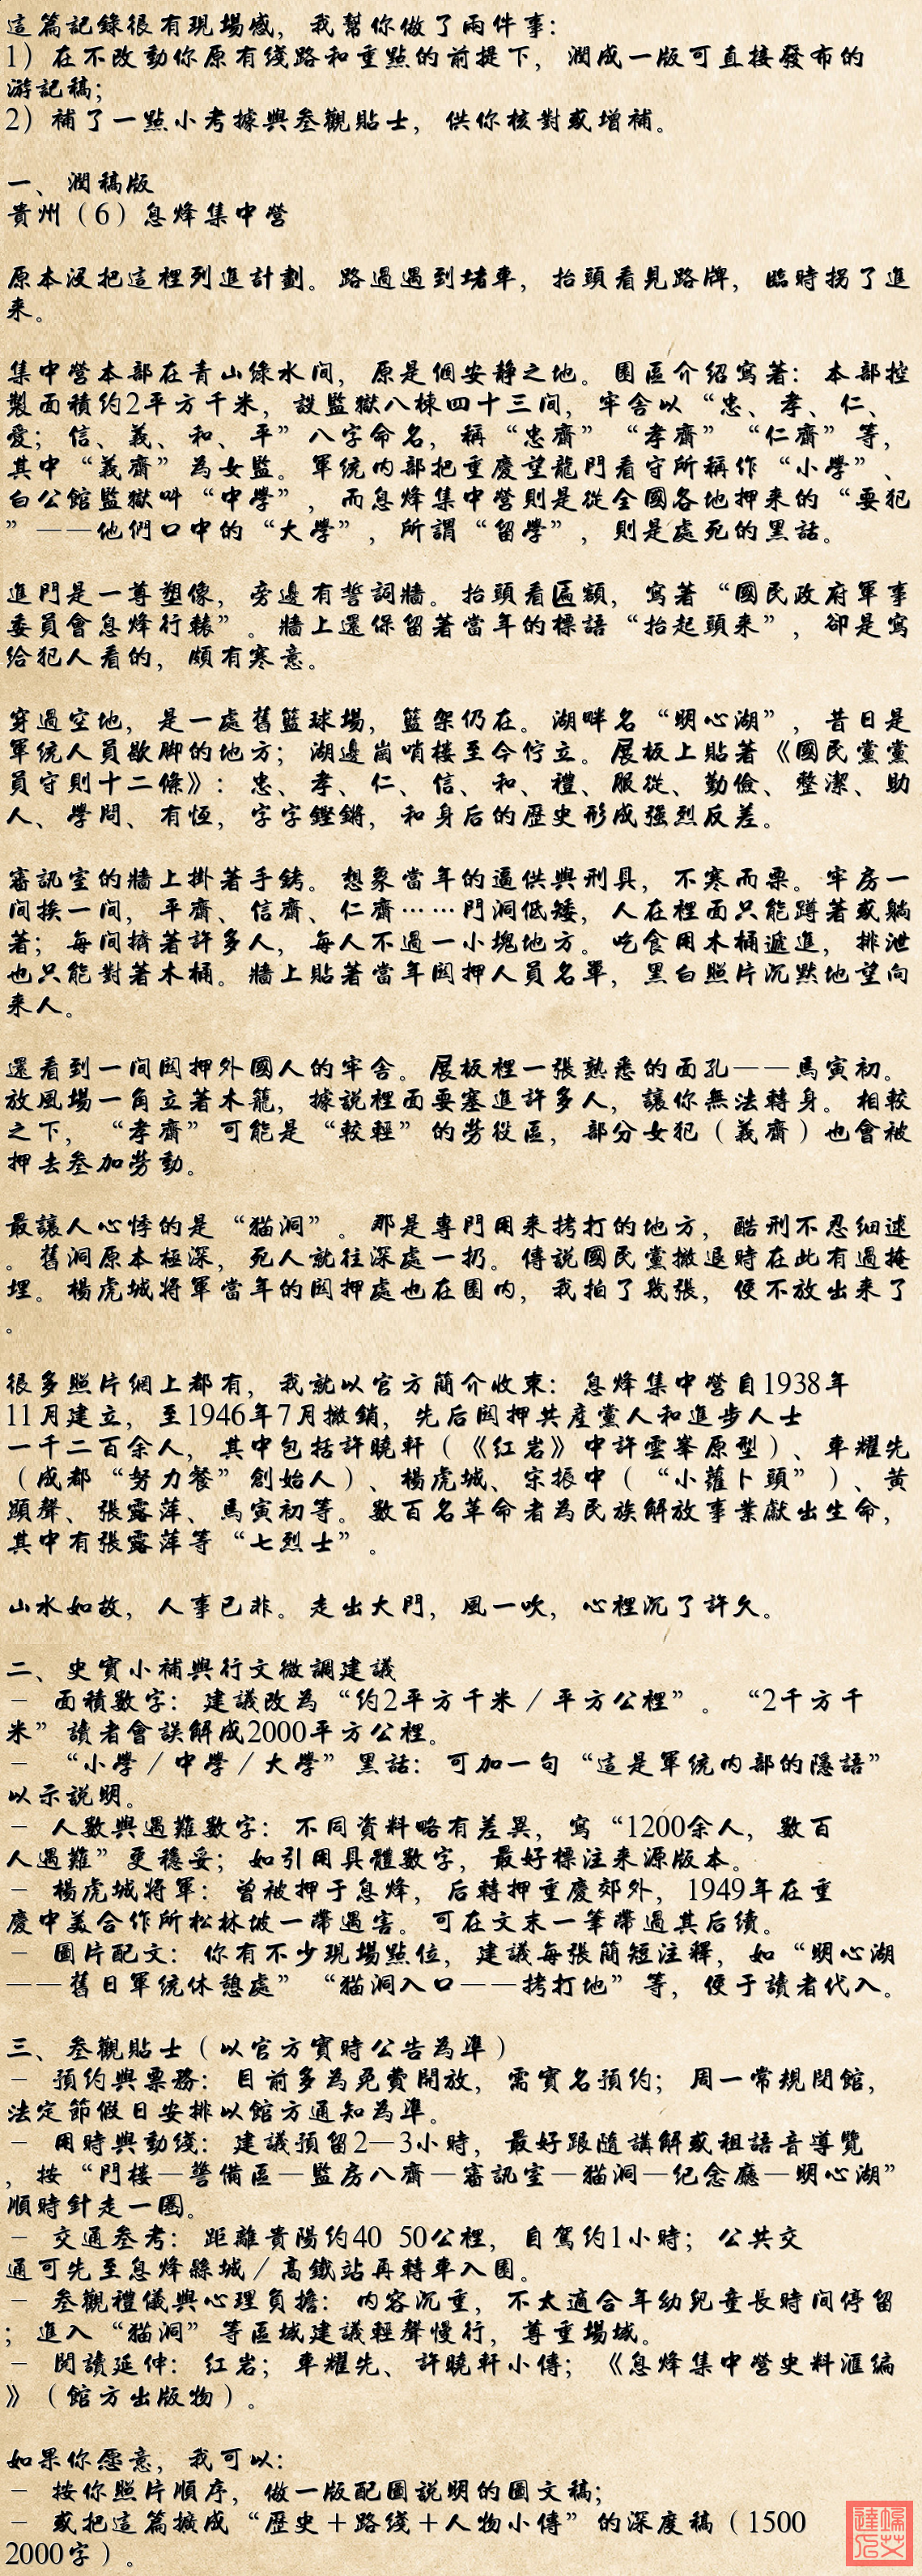 這篇記錄很有現場感，我幫你做了兩件事：
1）在不改動你原有綫路和重點的前提下，潤成一版可直接發布的
游記稿；
2）補了一點小考據與叁觀貼士，供你核對或增補。
一、潤稿版
貴州（6）息烽集中營
原本沒把這裡列進計劃。路過遇到堵車，抬頭看見路牌，臨時拐了進
來。
集中營本部在青山綠水间，原是個安静之地。園區介紹寫著：本部控
製面積約2平方千米，設監獄八棟四十三间，牢舍以“忠、孝、仁、
愛；信、義、和、平”八字命名，稱“忠齋”“孝齋”“仁齋”等，
其中“義齋”為女監。軍統内部把重慶望龍門看守所稱作“小學”、
白公館監獄叫“中學”，而息烽集中營則是從全國各地押來的“要犯
”——他們口中的“大學”，所謂“留學”，則是處死的黑話。
進門是一尊塑像，旁邊有誓詞牆。抬頭看匾額，寫著“國民政府軍事
委員會息烽行轅”。牆上還保留著當年的標語“抬起頭來”，卻是寫
給犯人看的，頗有寒意。
穿過空地，是一處舊籃球場，籃架仍在。湖畔名“明心湖”，昔日是
軍統人員歇脚的地方；湖邊崗哨樓至今佇立。展板上貼著《國民黨黨
員守則十二條》：忠、孝、仁、信、和、禮、服從、勤儉、整潔、助
人、學問、有恆，字字鏗鏘，和身后的歷史形成強烈反差。
審訊室的牆上掛著手銬。想象當年的逼供與刑具，不寒而栗。牢房一
间挨一间，平齋、信齋、仁齋……門洞低矮，人在裡面只能蹲著或躺
著；每间擠著許多人，每人不過一小塊地方。吃食用木桶遞進，排泄
也只能對著木桶。牆上貼著當年関押人員名單，黑白照片沉默地望向
來人。
還看到一间関押外國人的牢舍。展板裡一張熟悉的面孔——馬寅初。
放風場一角立著木籠，據說裡面要塞進許多人，讓你無法轉身。相較
之下，“孝齋”可能是“較輕”的勞役區，部分女犯（義齋）也會被
押去叁加勞動。
最讓人心悸的是“猫洞”。那是專門用來拷打的地方，酷刑不忍細述
。舊洞原本極深，死人就往深處一扔。傳說國民黨撤退時在此有過掩
埋。楊虎城將軍當年的関押處也在園内，我拍了幾張，便不放出來了
。
很多照片網上都有，我就以官方簡介收束：息烽集中營自1938年
11月建立，至1946年7月撤銷，先后関押共産黨人和進步人士
一千二百余人，其中包括許曉軒（《红岩》中許雲峯原型）、車耀先
（成都“努力餐”創始人）、楊虎城、宋振中（“小蘿卜頭”）、黄
顯聲、張露萍、馬寅初等。數百名革命者為民族解放事業獻出生命，
其中有張露萍等“七烈士”。
山水如故，人事已非。走出大門，風一吹，心裡沉了許久。
二、史實小補與行文微調建議
－ 面積數字：建議改為“約2平方千米／平方公裡”。“2千方千
米”讀者會誤解成2000平方公裡。
－ “小學／中學／大學”黑話：可加一句“這是軍統内部的隱語”
以示說明。
－ 人數與遇難數字：不同資料略有差異，寫“1200余人，數百
人遇難”更穩妥；如引用具體數字，最好標注來源版本。
－ 楊虎城將軍：曾被押于息烽，后轉押重慶郊外，1949年在重
慶中美合作所松林坡一帶遇害。可在文末一筆帶過其后續。
－ 圖片配文：你有不少現場點位，建議每張簡短注釋，如“明心湖
——舊日軍統休憩處”“猫洞入口——拷打地”等，便于讀者代入。
三、叁觀貼士（以官方實時公告為準）
－ 預約與票務：目前多為免費開放，需實名預約；周一常規閉館，
法定節假日安排以館方通知為準。
－ 用時與動綫：建議預留2—3小時，最好跟隨講解或租語音導覽
，按“門樓—警備區—監房八齋—審訊室—猫洞—纪念廳—明心湖”
順時針走一圈。
－ 交通叁考：距離貴陽約40 50公裡，自駕約1小時；公共交
通可先至息烽縣城／高鐵站再轉車入園。
－ 叁觀禮儀與心理負擔：内容沉重，不太適合年幼兒童長時间停留
；進入“猫洞”等區域建議輕聲慢行，尊重場域。
－ 閱讀延伸：红岩；車耀先、許曉軒小傳；《息烽集中營史料滙編
》（館方出版物）。
如果你愿意，我可以：
－ 按你照片順序，做一版配圖說明的圖文稿；
－ 或把這篇擴成“歷史＋路綫＋人物小傳”的深度稿（1500
2000字）。